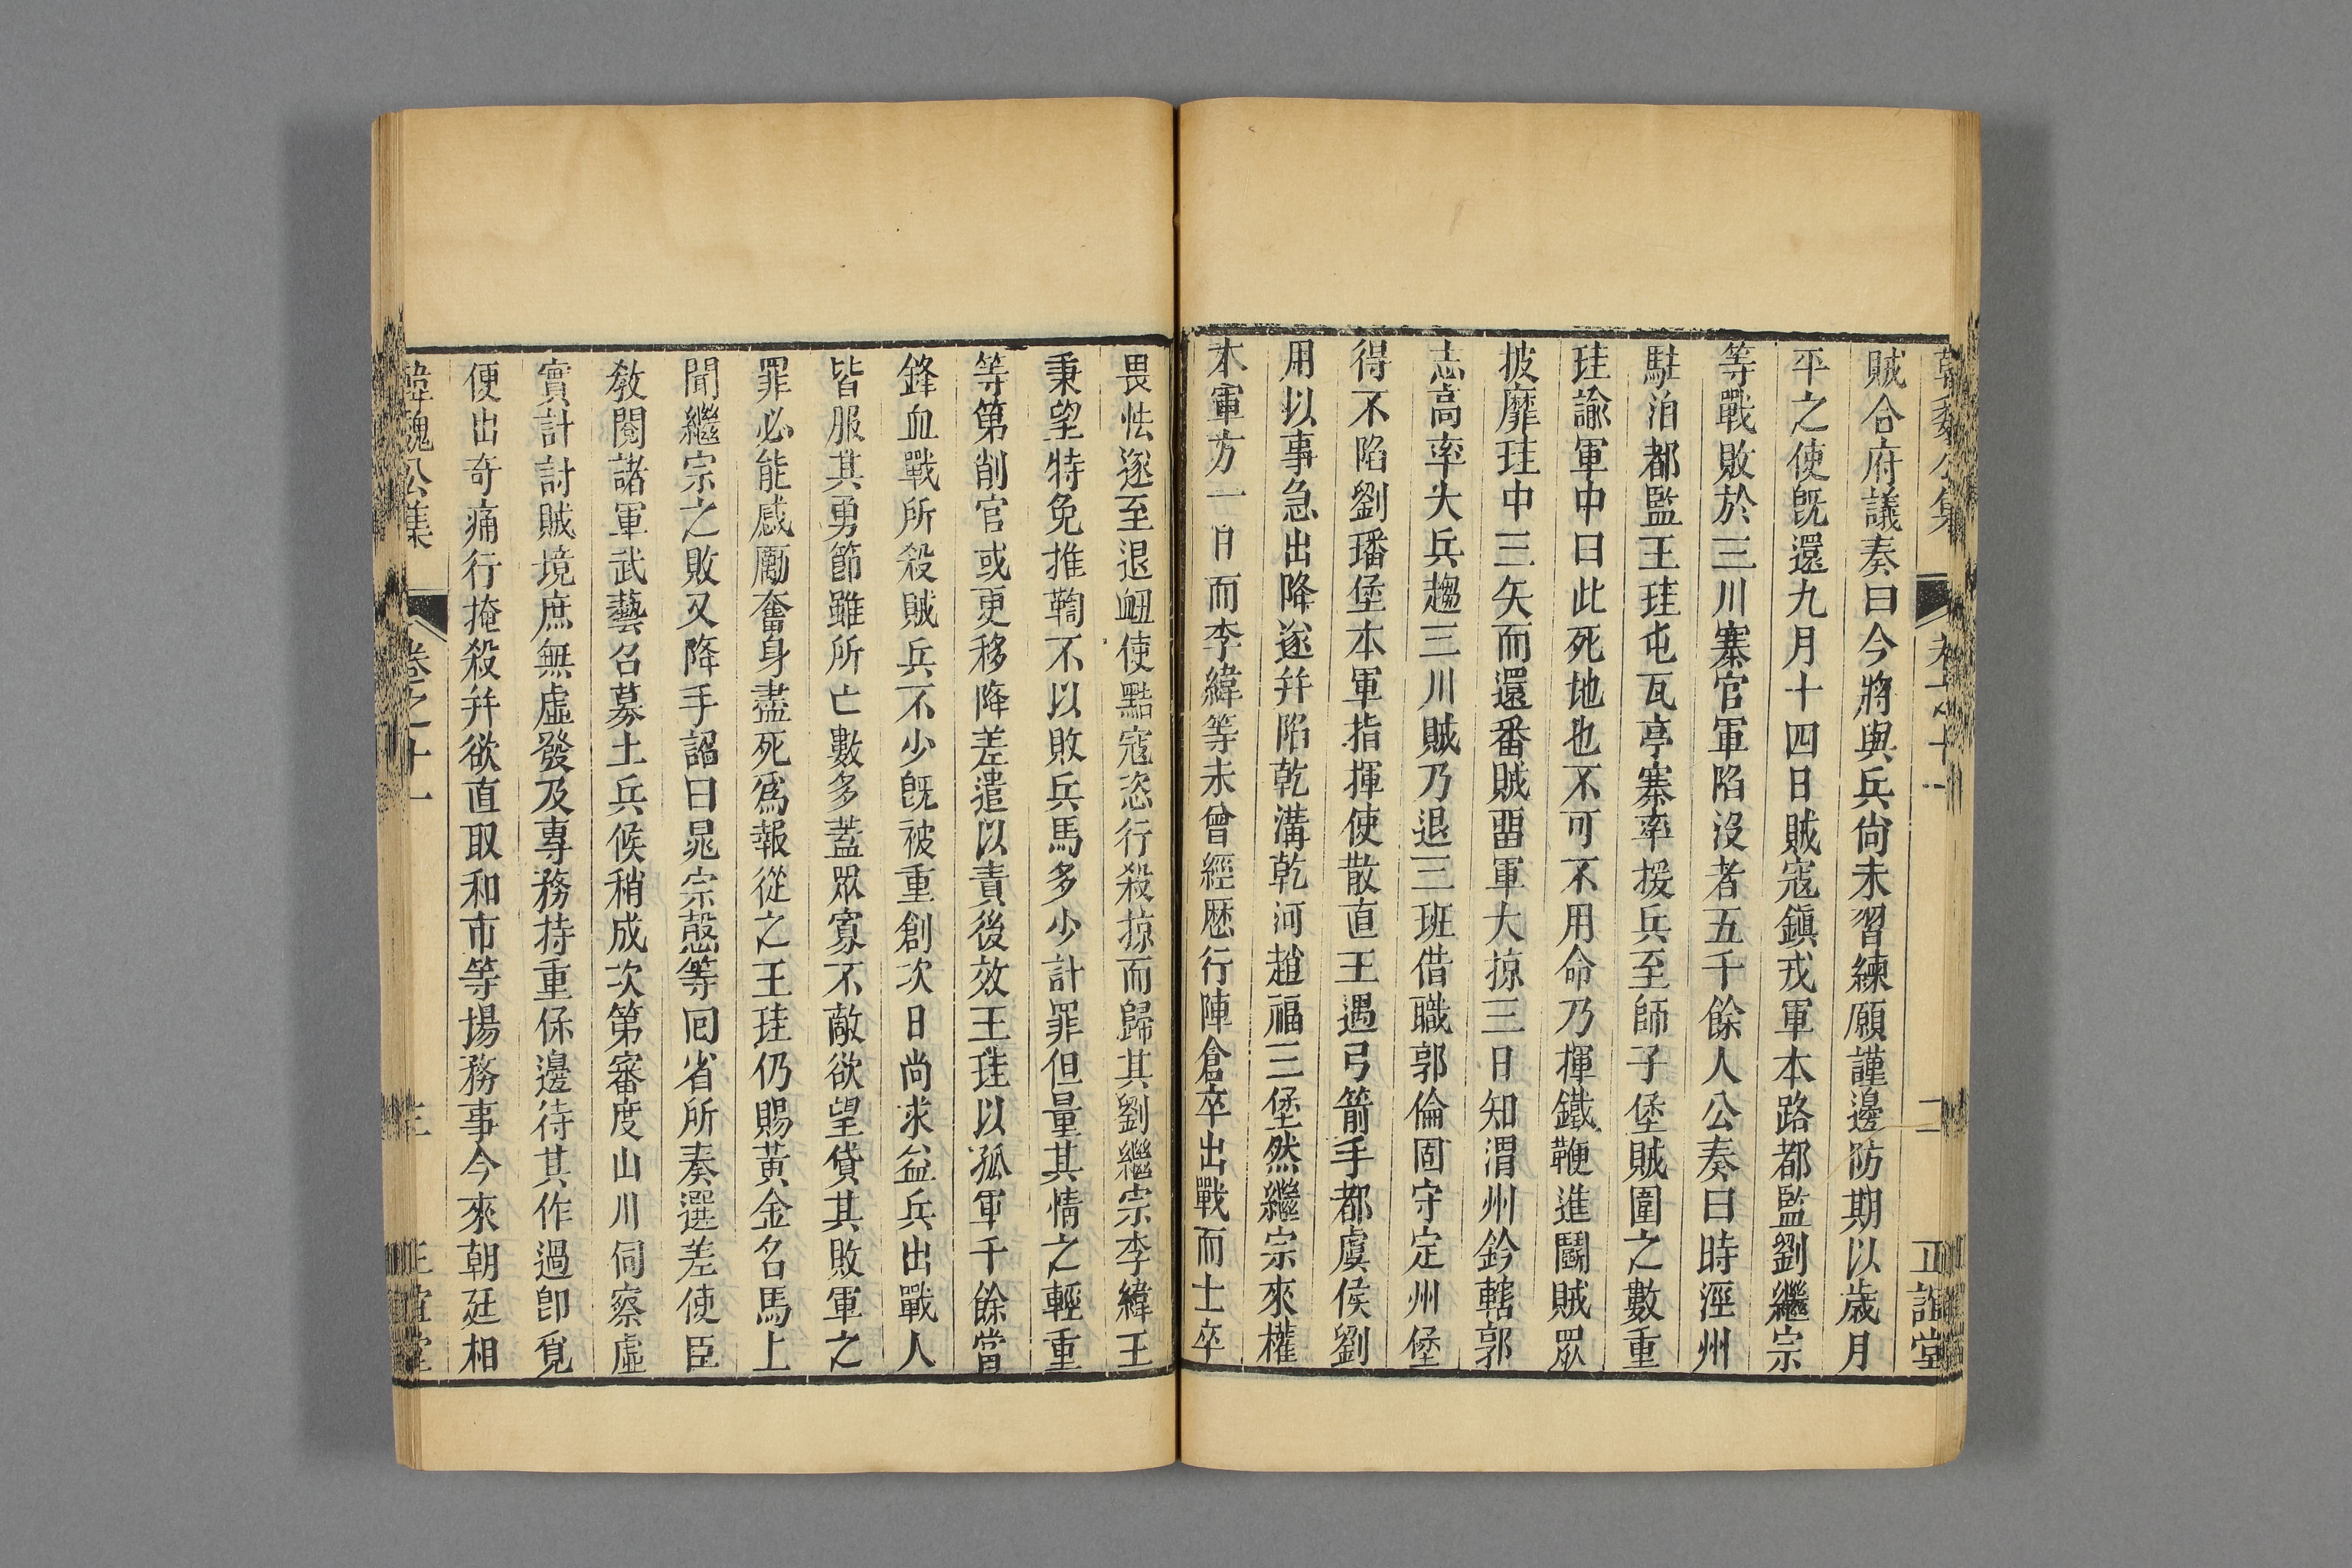 韓魏公集 卷之十一 二 正誼堂
賊合府議奏曰今將與兵尙未習練願謹邊防期以歲月
平之使旣還九月十四日賊寇鎭戎軍本路都監劉繼宗
等戰敗於三川寨官軍陷沒者五千餘人公奏曰時涇州
駐泊都監王珪屯瓦亭寨率援兵至師子堡賊圍之數重
珪諭軍中曰此死地也不可不用命乃揮鐵鞭進鬭賊眾
披靡珪中三矢而還番賊畱軍大掠三日知渭州鈐轄郭
志高率大兵趨三川賊乃退三班借職郭倫固守定州堡
得不陷劉璠堡本軍指揮使散直王遇弓箭手都虞侯劉
用以事急出降遂幷陷乾溝乾河趙福三堡然繼宗來權
本軍方一日而李緯等未曾經歷行陣倉卒出戰而士卒
畏怯遂至退衄使黠寇恣行殺掠而歸其劉繼宗李緯王
秉望特免推鞫不以敗兵馬多少計罪但量其情之輕重
等第削官或更移降差遣以責後效王珪以孤軍千餘當
鋒血戰所殺賊兵不少旣被重創次日尚求益兵出戰人
皆服其勇節雖所亡數多蓋眾寡不敵欲望貸其敗軍之
罪必能感勵奮身盡死爲報從之王珪仍賜黃金名馬上
聞繼宗之敗又降手詔曰晁宗慤等囘省所奏選差使臣
敎閱諸軍武藝召募土兵候稍成次第審度山川伺察虛
實計討賊境庶無虛發及專務持重保邊待其作過卽覓
便出奇痛行掩殺幷欲直取和市等場務事今來朝廷相
韓魏公集 卷之十一 三 正誼堂